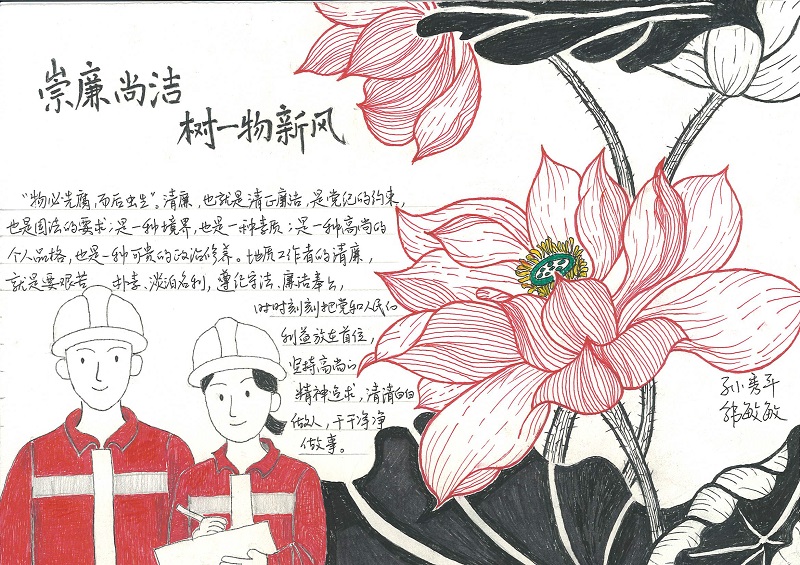 崇廉尚洁
树一物新风
“物必先腐,而后虫生”。清廉,也就是清正廉洁,是党纪的约束,
也是国法的要求;是一种境界,也是一种素质;是一种高尚的
个人品格,也是一种可贵的政治修养。地质工作者的清廉,
就是要艰苦 朴素、淡泊名利,遵纪守法、廉洁奉公,
时时刻刻把党和人民的
利益放在首位,
坚持高尚的
精神追求,清清白白
做人,干干净净
做事。
孙秀平
韩敏敏